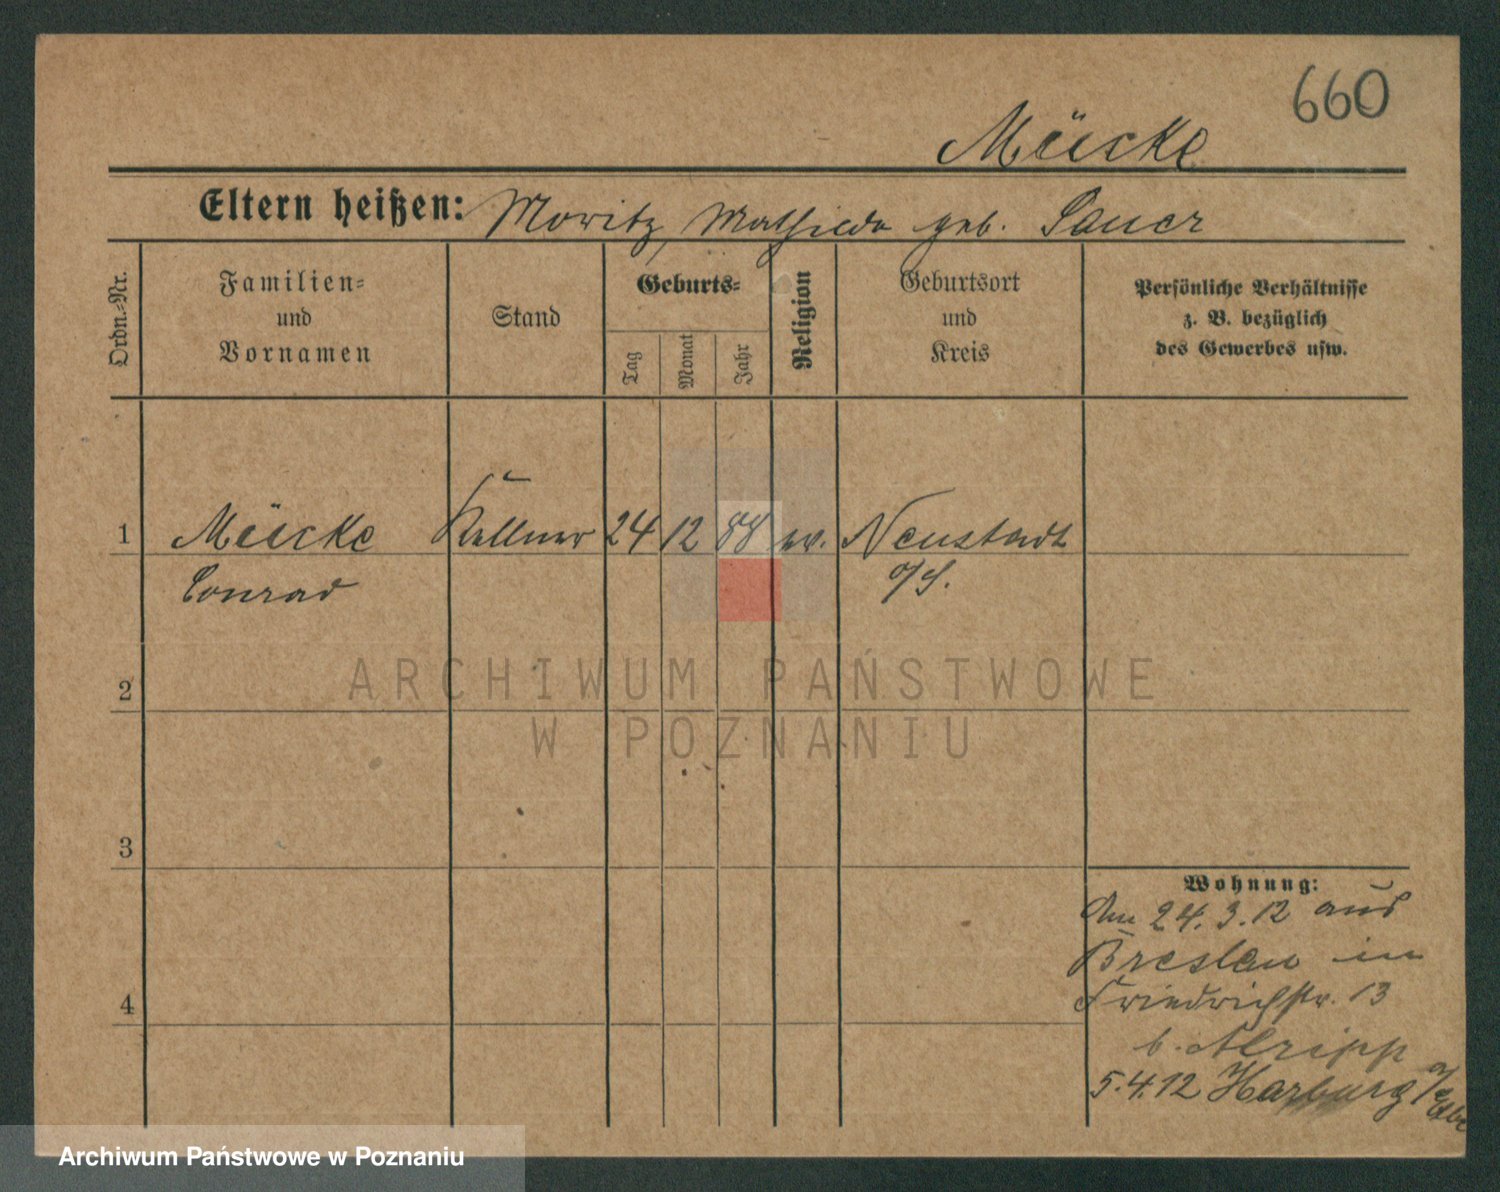 660
Mücke
Eltern heißen: Moritz, Mathilde geb. Sauer
Ordn.-Nr.
Familien-
und
Vornamen
Stand
Geburts-
Tag
Monat
Jahr
Religion
Geburtsort
und
Kreis
Persönliche Verhältnisse
z. B. bezüglich
des Gewerbes usw.
1 Mücke Kellner 24 12 88 ev. Neustadt
Conrad o/S.
2
3
4
Wohnung:
Am 24.3.12 aus
Breslau in
Friedrichstr. 13
b.
5.4.12 Harburg a/Elbe
ARCHIWUM PAŃSTWOWE
W POZNANIU
Archiwum Państwowe w Poznaniu